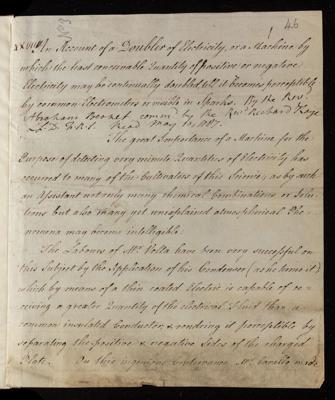 46
1
XXVIII An Account of a Doubler of Electricity, or a Machine by
which the least conceivable Quantity of positive or negative
Electricity may be continually doubled till it becomes perceptible
by common Electrometers or visible in Sparks. By the Revd.
Abraham Bennet comm. by the Revd. Richard Kaye
L.L.D. F.R.S. Read May 10, 1787.
The great Importance of a Machine for the
Purpose of detecting very minute Quantities of Electricity has
occurred to many of the Cultivators of this Science; as by such
an Assistant not only many chemical Combinations or Solu-
tions but also many yet unexplained atmospherical Phe-
nomena may become intelligible.
The Labours of Mr. Volta have been very successful on
this Subject by the Application of his Condenser (as he terms it)
which by means of a thin coated Electric is capable of re-
ceiving a greater Quantity of the electrical Fluid than a
common insulated Conductor, & rendring it perceptible by
separating the positive & negative Sides of the charged
Plate. On this ingenious Contrivance Mr. Cavallo made